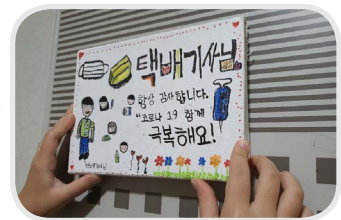 택배기사님
항상 감사합니다.
"코로나 19 함께
극복해요!